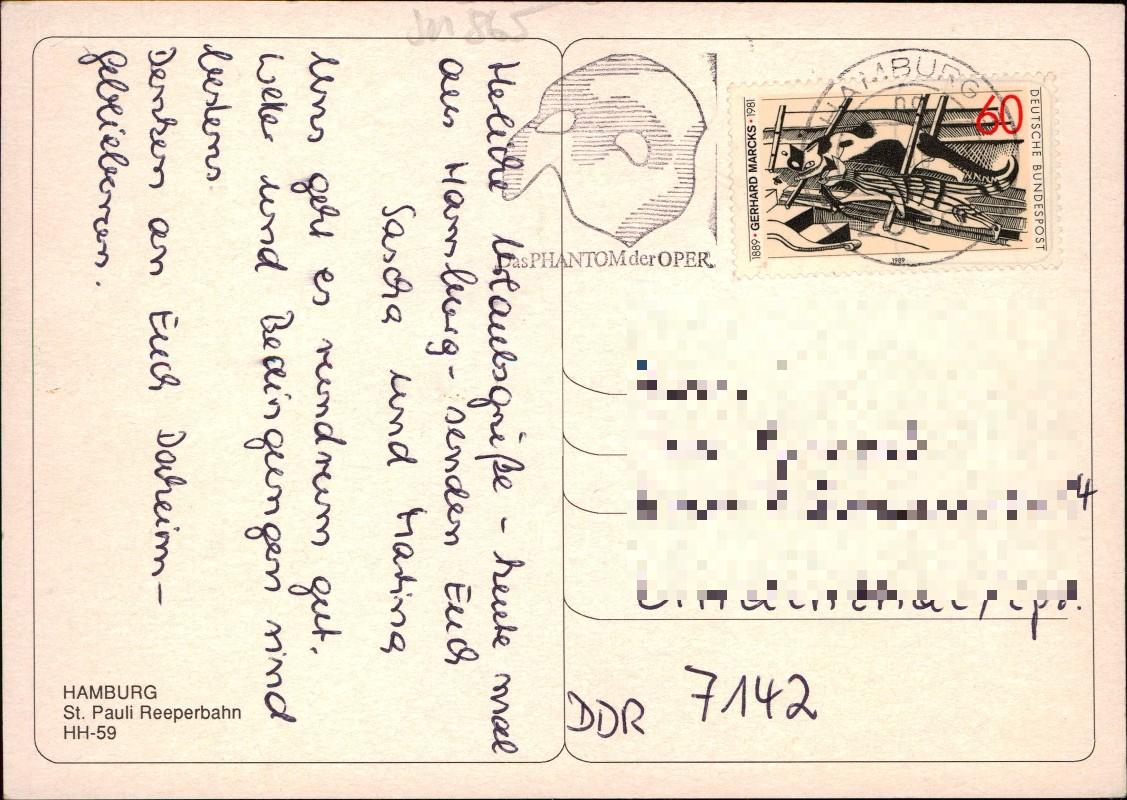 Herzliche Urlaubsgrüße - heute mal
aus Hamburg - senden Euch
Sascha und Martina
Uns geht es rundrum gut.
Wetter und Bedingungen sind
bestens.
Denken an Euch Daheim-
gebliebenen.
HAMBURG
St. Pauli Reeperbahn
HH-59
DasPHANTOMderOPER
HAMBURG
DEUTSCHE BUNDESPOST
60
1889 • GERHARD MARCKS • 1981
1989
4
DDR 7142